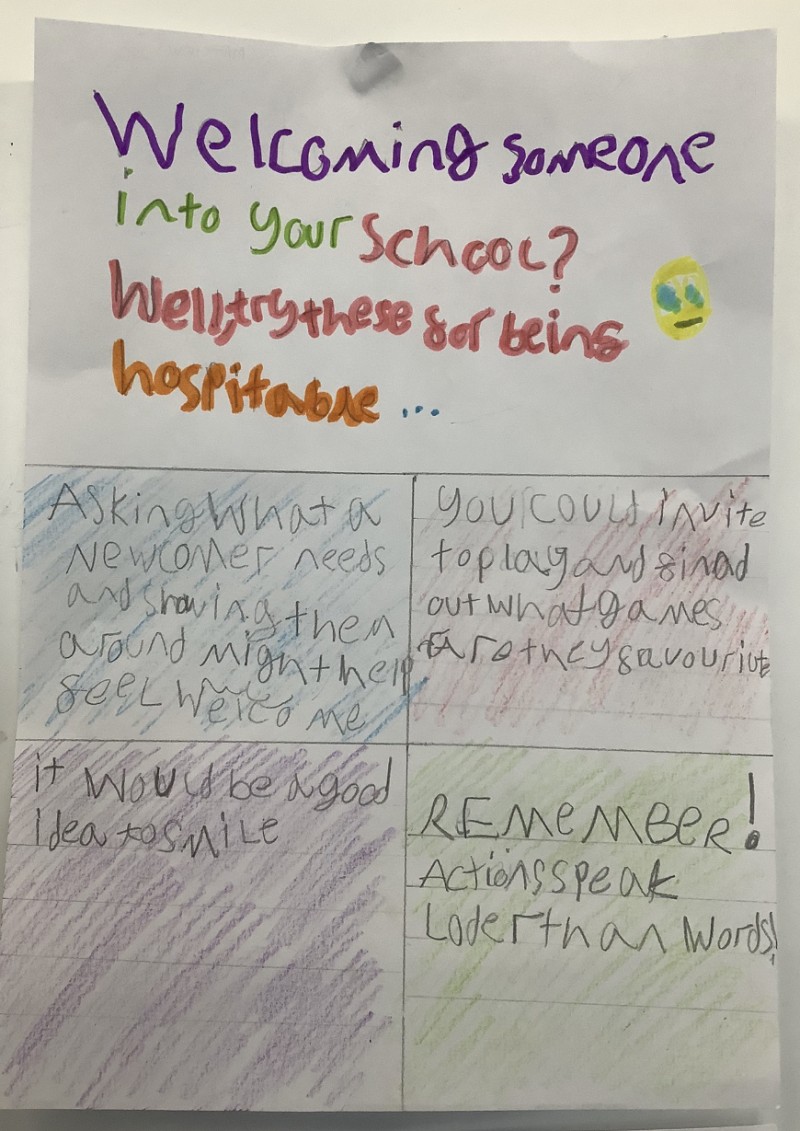 Welcoming someone
into your school?
Well, try these for being
hospitable ...
Asking what a
newcomer needs
and showing them
around might help
feel welcome
you could invite
to play and finad
out what games
are they favouriute
it would be a good
idea to smile
REMEMBER!
Actions speak
Loder than words!